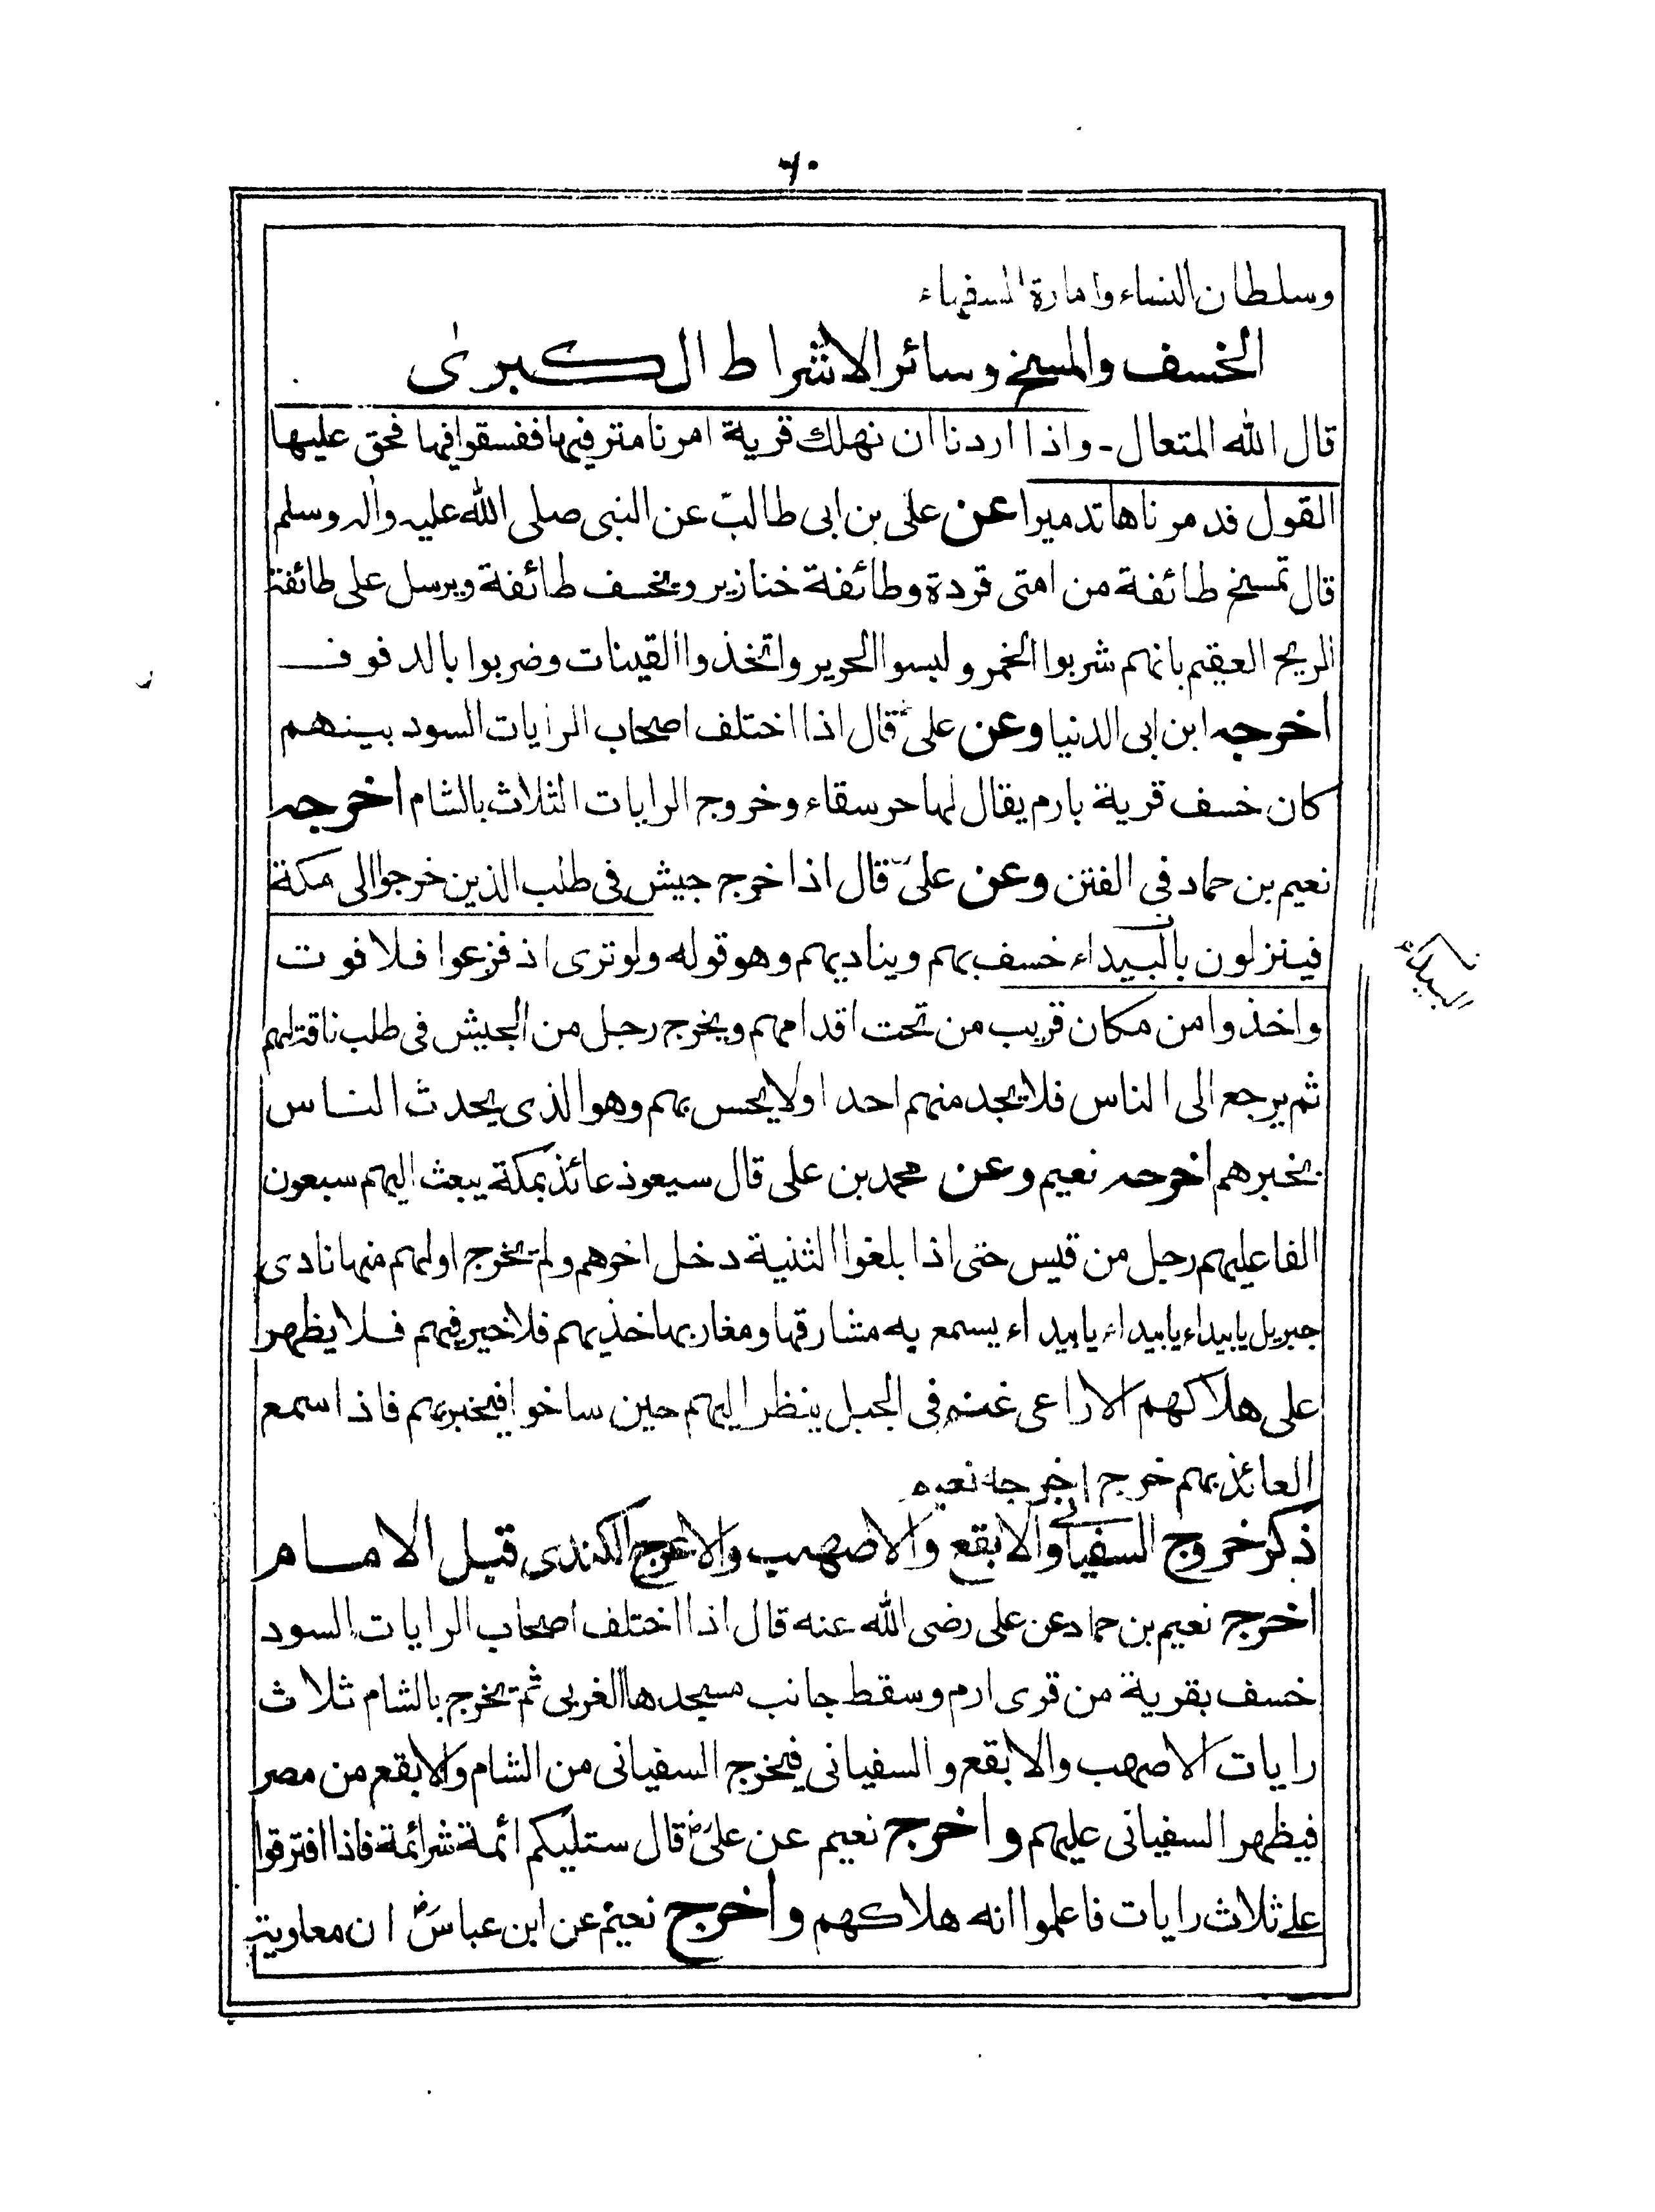 ٦٠
وسلطان النساء وامارة السفهاء
الخسف والمسخ وسائر الاشراط الكبرىٰ
قال الله المتعال - واذا اردنا ان نهلك قرية امرنا مترفيها ففسقوا فيها فحق عليها
القول فدمرناها تدميرا عن على بن ابى طالبؓ عن النبى صلى الله عليه واله وسلم
قال تمسخ طائفة من امتى قردة وطائفة خنازير ويخسف طائفة ويرسل على طائفة
الريح العقيم بانهم شربوا الخمر ولبسوا الحرير واتخذوا القينات وضربوا بالدفوف
اخرجه ابن ابى الدنيا وعن علىؓ قال اذا اختلف اصحاب الرايات السود بينهم
كان خسف قرية بارم يقال لها حرسقاء وخروج الرايات الثلاث بالشام اخرجه
نعيم بن حماد فى الفتن وعن علىؓ قال اذا خرج جيش فى طلب الذين خرجوا الى مكة
فينزلون بالبيداء خسف بهم ويناديهم وهو قوله ولو ترى اذ فزعوا فلا فوت
واخذوا من مكان قريب من تحت اقدامهم ويخرج رجل من الجيش فى طلب ناقة لهم
ثم يرجع الى الناس فلا يجد منهم احدا ولا يحس بهم وهو الذى يحدث الناس
بخبرهم اخرجه نعيم وعن محمد بن على قال سيعوذ عائذ بمكة يبعث اليهم سبعون
الفا عليهم رجل من قيس حتى اذا بلغوا الثنية دخل اخرهم ولم يخرج اولهم منها نادى
جبريل يا بيداء يا بيداء يا بيداء يسمع به مشارقها ومغاربها خذيهم فلا خير فيهم فلا يظهر
على هلاكهم الا راعى غنم فى الجبل ينظر اليهم حين ساخوا فيخبرهم فاذا سمع
العائذ بهم خرج اخرجه نعيم
ذكر خروج السفيانى والابقع والاصهب والاعرج الكندى قبل الامام
اخرج نعيم بن حماد عن على رضى الله عنه قال اذا اختلف اصحاب الرايات السود
خسف بقرية من قرى ارم وسقط جانب مسجدها الغربى ثم يخرج بالشام ثلاث
رايات الاصهب والابقع والسفيانى فيخرج السفيانى من الشام والابقع من مصر
فيظهر السفيانى عليهم واخرج نعيم عن علىؓ قال ستليكم ائمة شر ائمة فاذا افترقوا
على ثلاث رايات فاعلموا انه هلاكهم واخرج نعيم عن ابن عباسؓ ان معاوية
البيداء